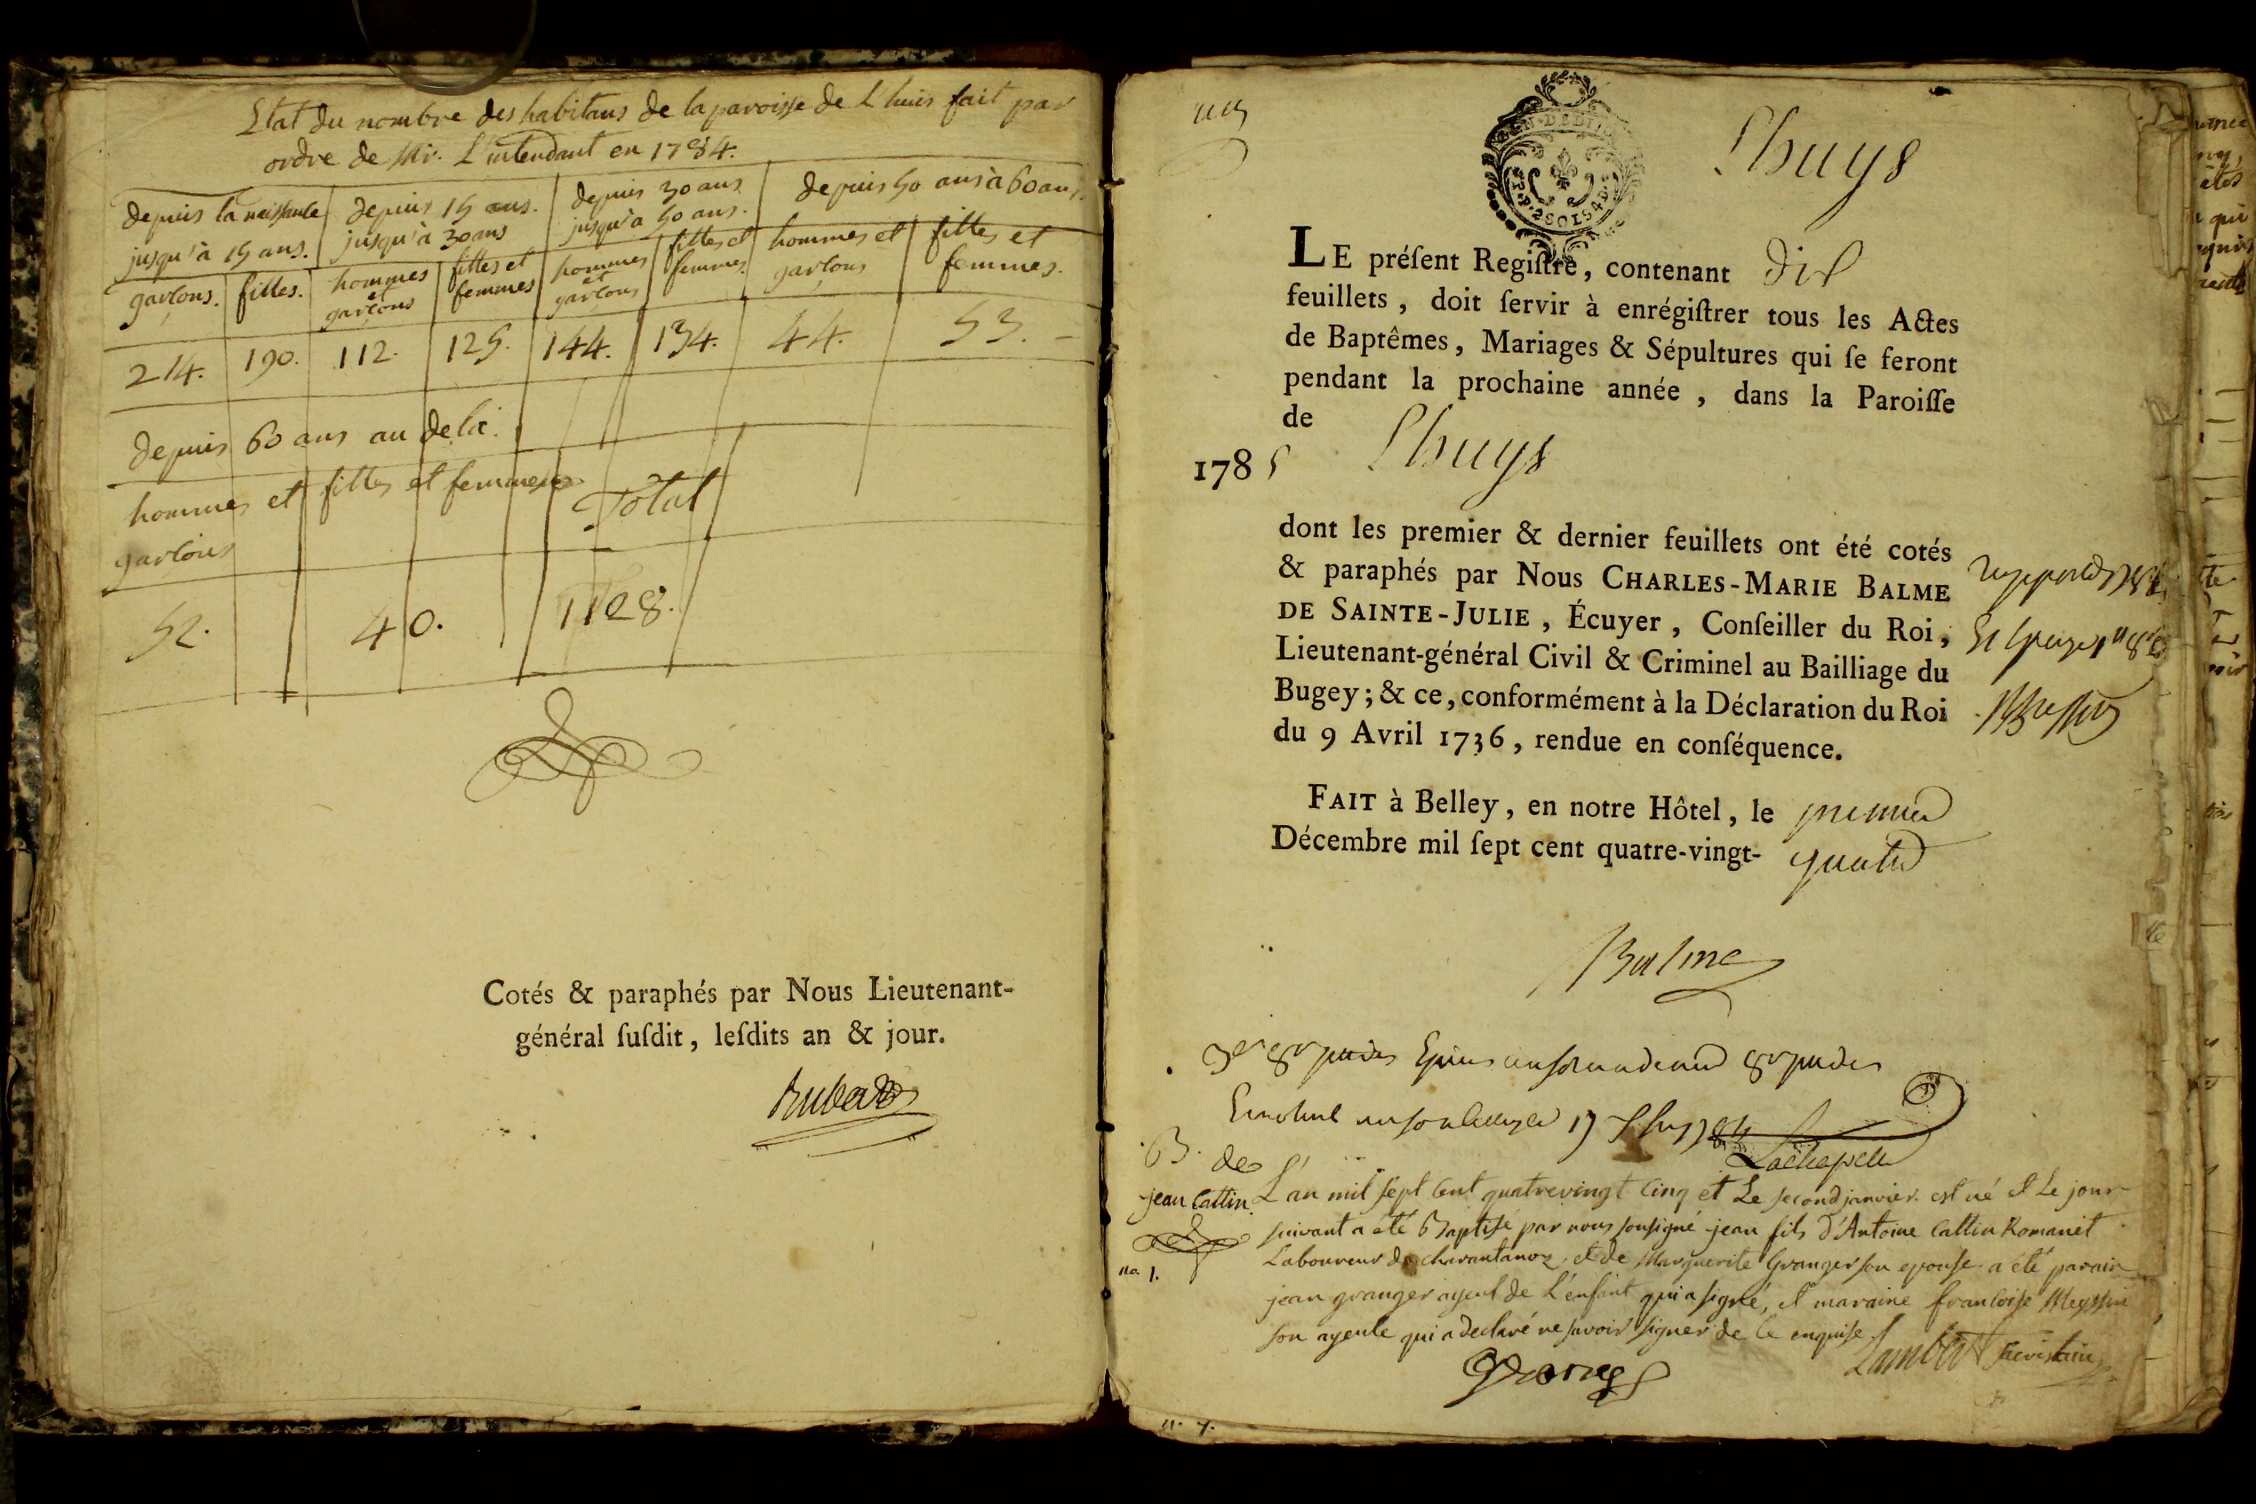 Etat du nombre des habitans de la paroisse de Lhuis fait par
ordre de Mr. L'intendant en 1784.
depuis la naissance
jusqu'à 15 ans.
depuis 15 ans.
jusqu'à 30 ans
depuis 30 ans
jusqu'à 50 ans.
depuis 50 ans à 60 ans.
garçons. filles. hommes et garçons filles et femmes hommes et garçons filles et femmes. hommes et garçons filles et femmes.
214. 190. 112. 125. 144. 134. 44. 53.
depuis 60 ans au dela.
hommes et garçons filles et femmes Total
52. 40. 1108.
Cotés & paraphés par Nous Lieutenant-
général ſuſdit, leſdits an & jour.
Lhuys
LE préſent Regiſtre, contenant dix
feuillets, doit ſervir à enrégiſtrer tous les Actes
de Baptêmes, Mariages & Sépultures qui ſe feront
pendant la prochaine année, dans la Paroiſſe
de Lhuys
1785
dont les premier & dernier feuillets ont été cotés
& paraphés par Nous CHARLES-MARIE BALME
DE SAINTE-JULIE, Écuyer, Conſeiller du Roi,
Lieutenant-général Civil & Criminel au Bailliage du
Bugey; & ce, conformément à la Déclaration du Roi
du 9 Avril 1736, rendue en conſéquence.
FAIT à Belley, en notre Hôtel, le premier
Décembre mil ſept cent quatre-vingt- quatre
Balme
Lachapelle
B. de
jean Cattin.
no. 1.
L'an mil sept cent quatrevingt cinq et Le second janvier est né et Le jour
suivant a été Baptisé par nous sousigné jean fils d'Antoine Cattin Romanet
Laboureur de charantanoz et de Marguerite Granger son epouse. a été parain
jean granger ayeul de L'enfant qui a signé, et maraine francoise Meyssin
son ayeule qui a declaré ne savoir signer de ce enquise.
Lambert